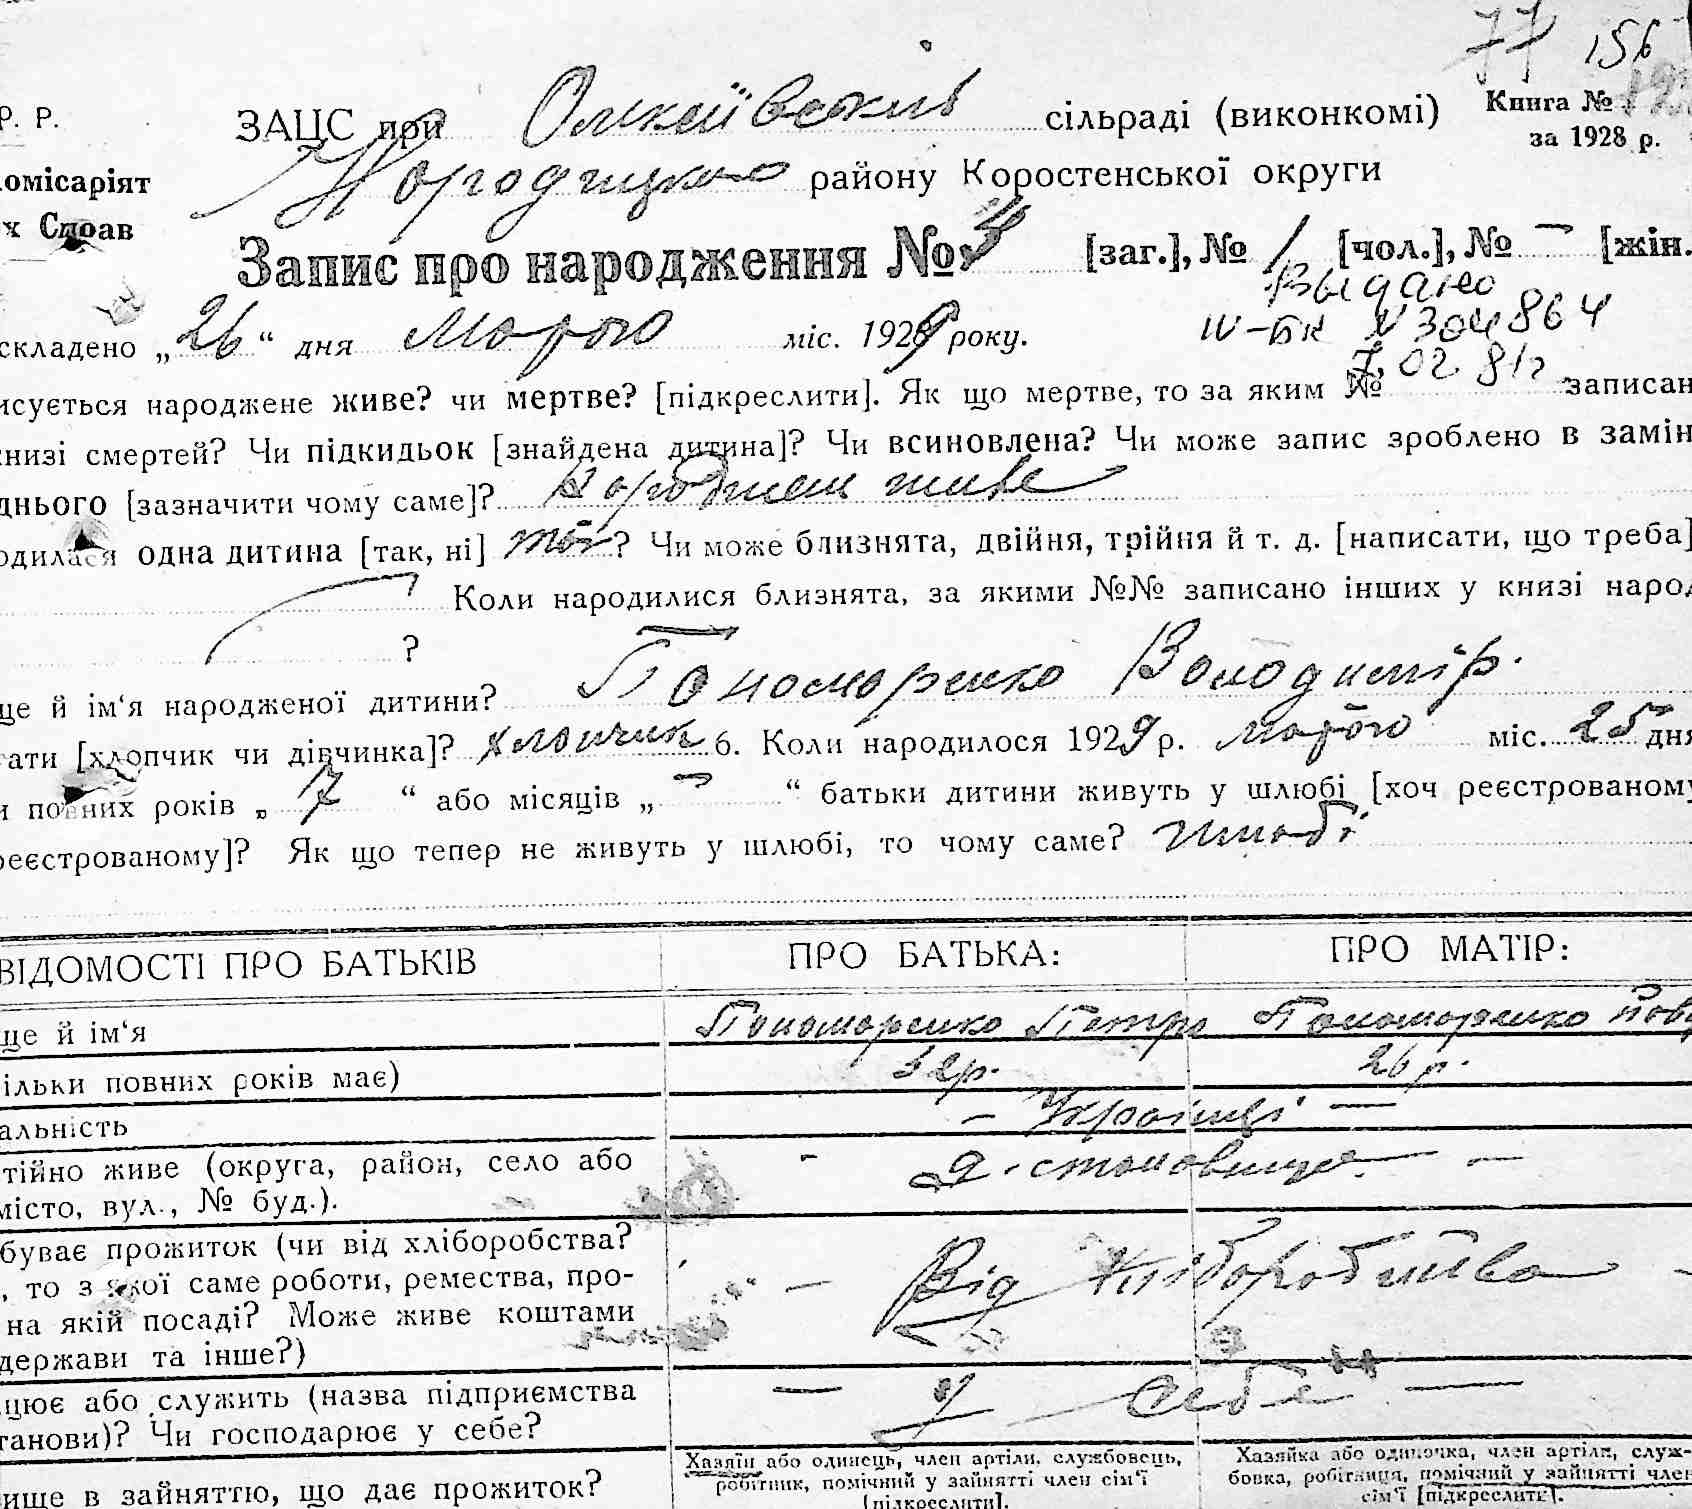 77 156
Р. Р. ЗАЦС при сільраді (виконкомі) Книга №
за 1928 р.
омісаріят Народицького району Коростенської округи
х Справ
Запис про народження № 3 [заг.], № 1 [чол.], № — [жін.
Выдано
складено „ 26 “ дня Марта міс. 1929 року.
IV-БК N 304864
7.02 81г
исується народжене живе? чи мертве? [підкреслити]. Як що мертве, то за яким № записан
книзі смертей? Чи підкидьок [знайдена дитина]? Чи всиновлена? Чи може запис зроблено в замін
днього [зазначити чому саме]? живе
одилася одна дитина [так, ні] так? Чи може близнята, двійня, трійня й т. д. [написати, що треба]
Коли народилися близнята, за якими №№ записано інших у книзі народ
?
ще й ім‘я народженої дитини? Пономаренко Володимір.
тати [хлопчик чи дівчинка]? хлопчик 6. Коли народилося 1929 р. марта міс. 25 дня
и повних років „ 7 “ або місяців „ — “ батьки дитини живуть у шлюбі [хоч реєстрованому
реєстрованому]? Як що тепер не живуть у шлюбі, то чому саме? шлюбі
ВІДОМОСТІ ПРО БАТЬКІВ ПРО БАТЬКА: ПРО МАТІР:
ще й ім‘я Пономаренко Петро Пономаренко
ільки повних років має) 32р. 26 р.
альність — Українці —
тійно живе (округа, район, село або
місто, вул., № буд.).
буває прожиток (чи від хліборобства?
, то з якої саме роботи, ремества, про-
на якій посаді? Може живе коштами
держави та інше?)
— Від хліборобства —
цює або служить (назва підприємства
танови)? Чи господарює у себе?
— у себе —
ище в зайняттю, що дає прожиток?
Хазяїн або одинець, член артіли, службовець,
робітник, помічний у зайнятті член сім‘ї
[підкреслити].
Хазяйка або одиначка, член артіли, служ-
бовка, робітниця, помічний у зайнятті член
сім‘ї [підкреслить].